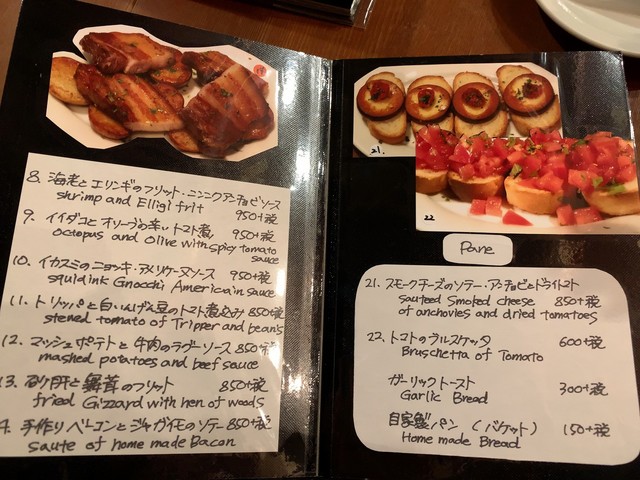 8. 海老とエリンギのフリット・ニンニクアンチョビソース
shrimp and Elligi frit 950+税
9. イイダコとオリーブの辛いトマト煮 950+税
octopus and olive with spicy tomato
sauce
10. イカスミのニョッキ・アメリケーヌソース 950+税
squid ink Gnocchi Americain sauce
11. トリッパと白いんげん豆のトマト煮込み 850+税
stened tomato of Tripper and beans
12. マッシュポテトと牛肉のラグーソース 850+税
mashed potatoes and beef sauce
13. 砂肝と舞茸のフリット 850+税
fried Gizzard with hen of woods
4. 手作りベーコンとジャガイモのソテー 850+税
saute of home made Bacon
21.
22
Pane
21. スモークチーズのソテー・アンチョビとドライトマト
sauteed smoked cheese 850+税
of anchovies and dried tomatoes
22. トマトのブルスケッタ 600+税
Bruschetta of Tomato
ガーリックトースト 300+税
Garlic Bread
自家製パン (バケット) 150+税
Home made Bread